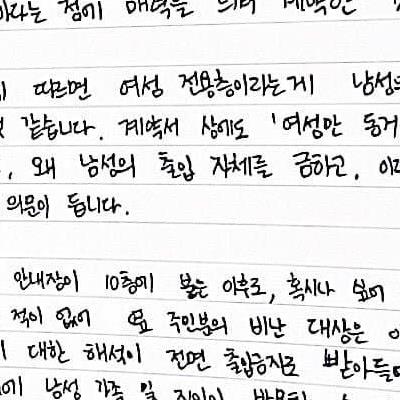 이라는 점에 매력을 느껴 계약한
따르면 여성 전용층이라는게 남성의
것 같습니다. 계약서 상에도 '여성만 동거
, 왜 남성의 출입 자체를 금하고, 이
의문이 듭니다.
안내장이 10층에 붙는 이후로, 혹시나 싶어
적이 없어 옆 주민분의 비난 대상은 아
대한 해석이 전면 출입금지로 받아들
남성 가족 일